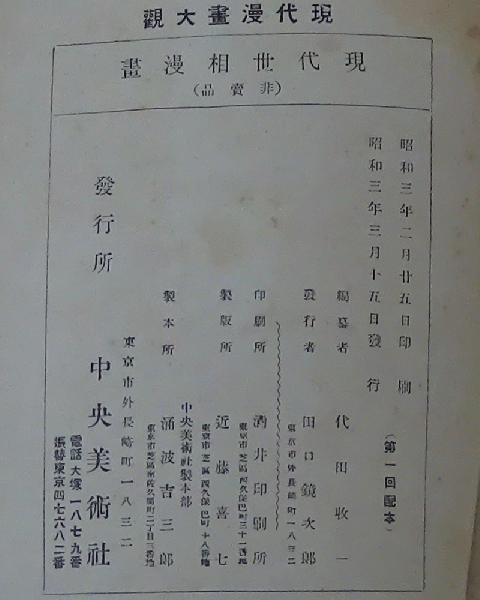 現代漫畫大觀
現代世相漫畫
（非賣品）
昭和三年二月廿五日印刷
昭和三年三月十五日發行
（第一回配本）
編纂者　代田收一
發行者　田口鏡次郎
東京市外長崎町一八三二
印刷所　酒井印刷所
東京市芝區西久保巴町三十一番地
製版所　近藤喜七
東京市芝區西久保巴町十八番地
製本所　中央美術社製本部
涌波吉三郎
東京市芝區南佐久間町二丁目三番地
發行所
東京市外長崎町一八三二
中央美術社
電話大塚一八七九番
振替東京四七六八二番